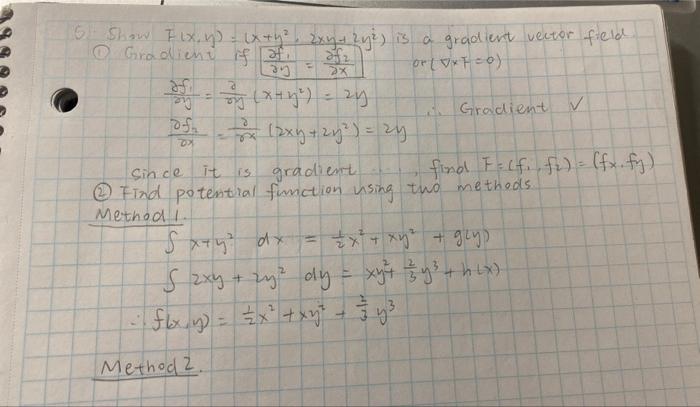 5. Show F(x,y) = (x+y², 2xy+2y²) is a gradient vector field.
① Gradient if ∂f₁/∂y = ∂f₂/∂x or (∇×F=0)
∂f₁/∂y = ∂/∂y (x+y²) = 2y
∴ Gradient ✓
∂f₂/∂x = ∂/∂x (2xy+2y²) = 2y
Since it is gradient ...., find F=(f₁,f₂)=(fx,fy)
② Find potential function using two methods
Method 1.
∫ x+y² dx = ½x² + xy² + g(y)
∫ 2xy + 2y² dy = xy² + ⅔y³ + h(x)
∴ f(x,y) = ½x² + xy² + ⅔y³
Method 2.